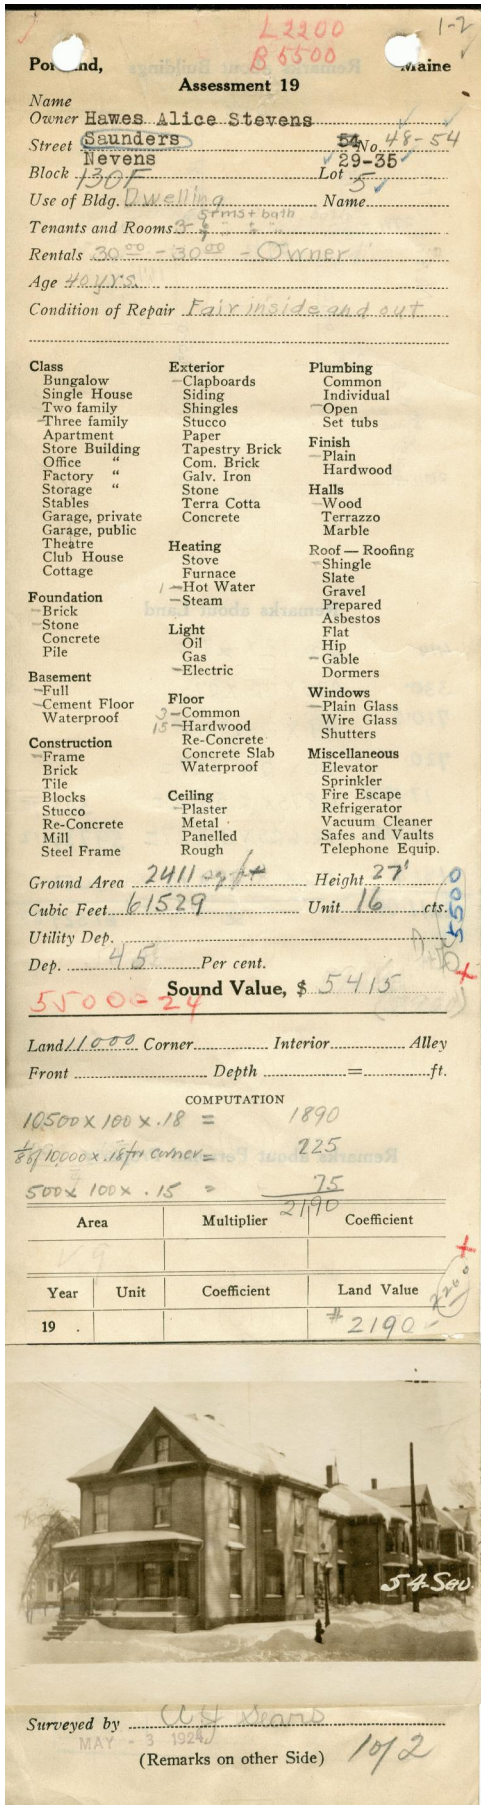 L 2200
B 5500
1-2
Portland, Maine
Assessment 19
Name
Owner Hawes Alice Stevens
Street Saunders 54 No. 48-54
Nevens 29-35
Block 130F Lot 5
Use of Bldg. Dwelling Name
5 rms + bath
Tenants and Rooms 3-
Rentals 30 00 - 30 00 - Owner
Age 40 yrs.
Condition of Repair Fair inside and out
Class
Bungalow
Single House
Two family
-Three family
Apartment
Store Building
Office "
Factory "
Storage "
Stables
Garage, private
Garage, public
Theatre
Club House
Cottage
Foundation
-Brick
-Stone
Concrete
Pile
Basement
-Full
-Cement Floor
Waterproof
Construction
-Frame
Brick
Tile
Blocks
Stucco
Re-Concrete
Mill
Steel Frame
Exterior
-Clapboards
Siding
Shingles
Stucco
Paper
Tapestry Brick
Com. Brick
Galv. Iron
Stone
Terra Cotta
Concrete
Heating
Stove
Furnace
1 -Hot Water
-Steam
Light
Oil
Gas
-Electric
Floor
3-Common
15-Hardwood
Re-Concrete
Concrete Slab
Waterproof
Ceiling
-Plaster
Metal
Panelled
Rough
Plumbing
Common
Individual
-Open
Set tubs
Finish
-Plain
Hardwood
Halls
-Wood
Terrazzo
Marble
Roof — Roofing
-Shingle
Slate
Gravel
Prepared
Asbestos
Flat
Hip
-Gable
Dormers
Windows
-Plain Glass
Wire Glass
Shutters
Miscellaneous
Elevator
Sprinkler
Fire Escape
Refrigerator
Vacuum Cleaner
Safes and Vaults
Telephone Equip.
Ground Area 2411 sq. ft Height 27'
Cubic Feet 61529 Unit 16 cts.
5500
Utility Dep.
Dep. 45 Per cent.
Sound Value, $ 5415
5500-24
Land 11000 Corner Interior Alley
Front Depth = ft.
COMPUTATION
10500 x 100 x .18 = 1890
1/8 of 10000 x .18 for corner = 225
500 x 100 x .15 = 75
2190
Area Multiplier Coefficient
Year Unit Coefficient Land Value
2200
19 . # 2190-
54-Sau.
Surveyed by
MAY - 3 1924
(Remarks on other Side) 1 of 2